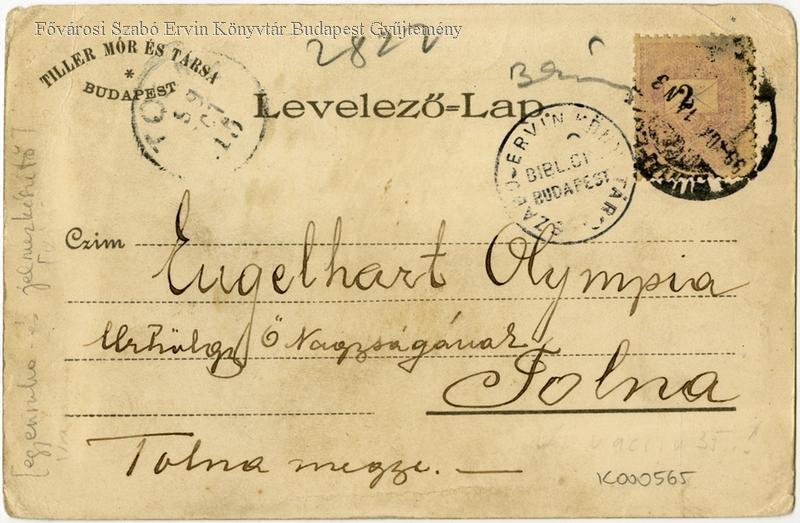 Fővárosi Szabó Ervin Könyvtár Budapest Gyűjtemény
TILLER MÓR ÉS TÁRSA
*
BUDAPEST
2822
Levelező=Lap
SZABÓ-ERVIN KÖNYVTÁR
BIBL.CI
BUDAPEST
Czim
Engelhart Olympia
Urhölgy Ő Nagyságának
Tolna
Tolna megye. —
K000565
[egyenruha- és jelmezkészítő?]